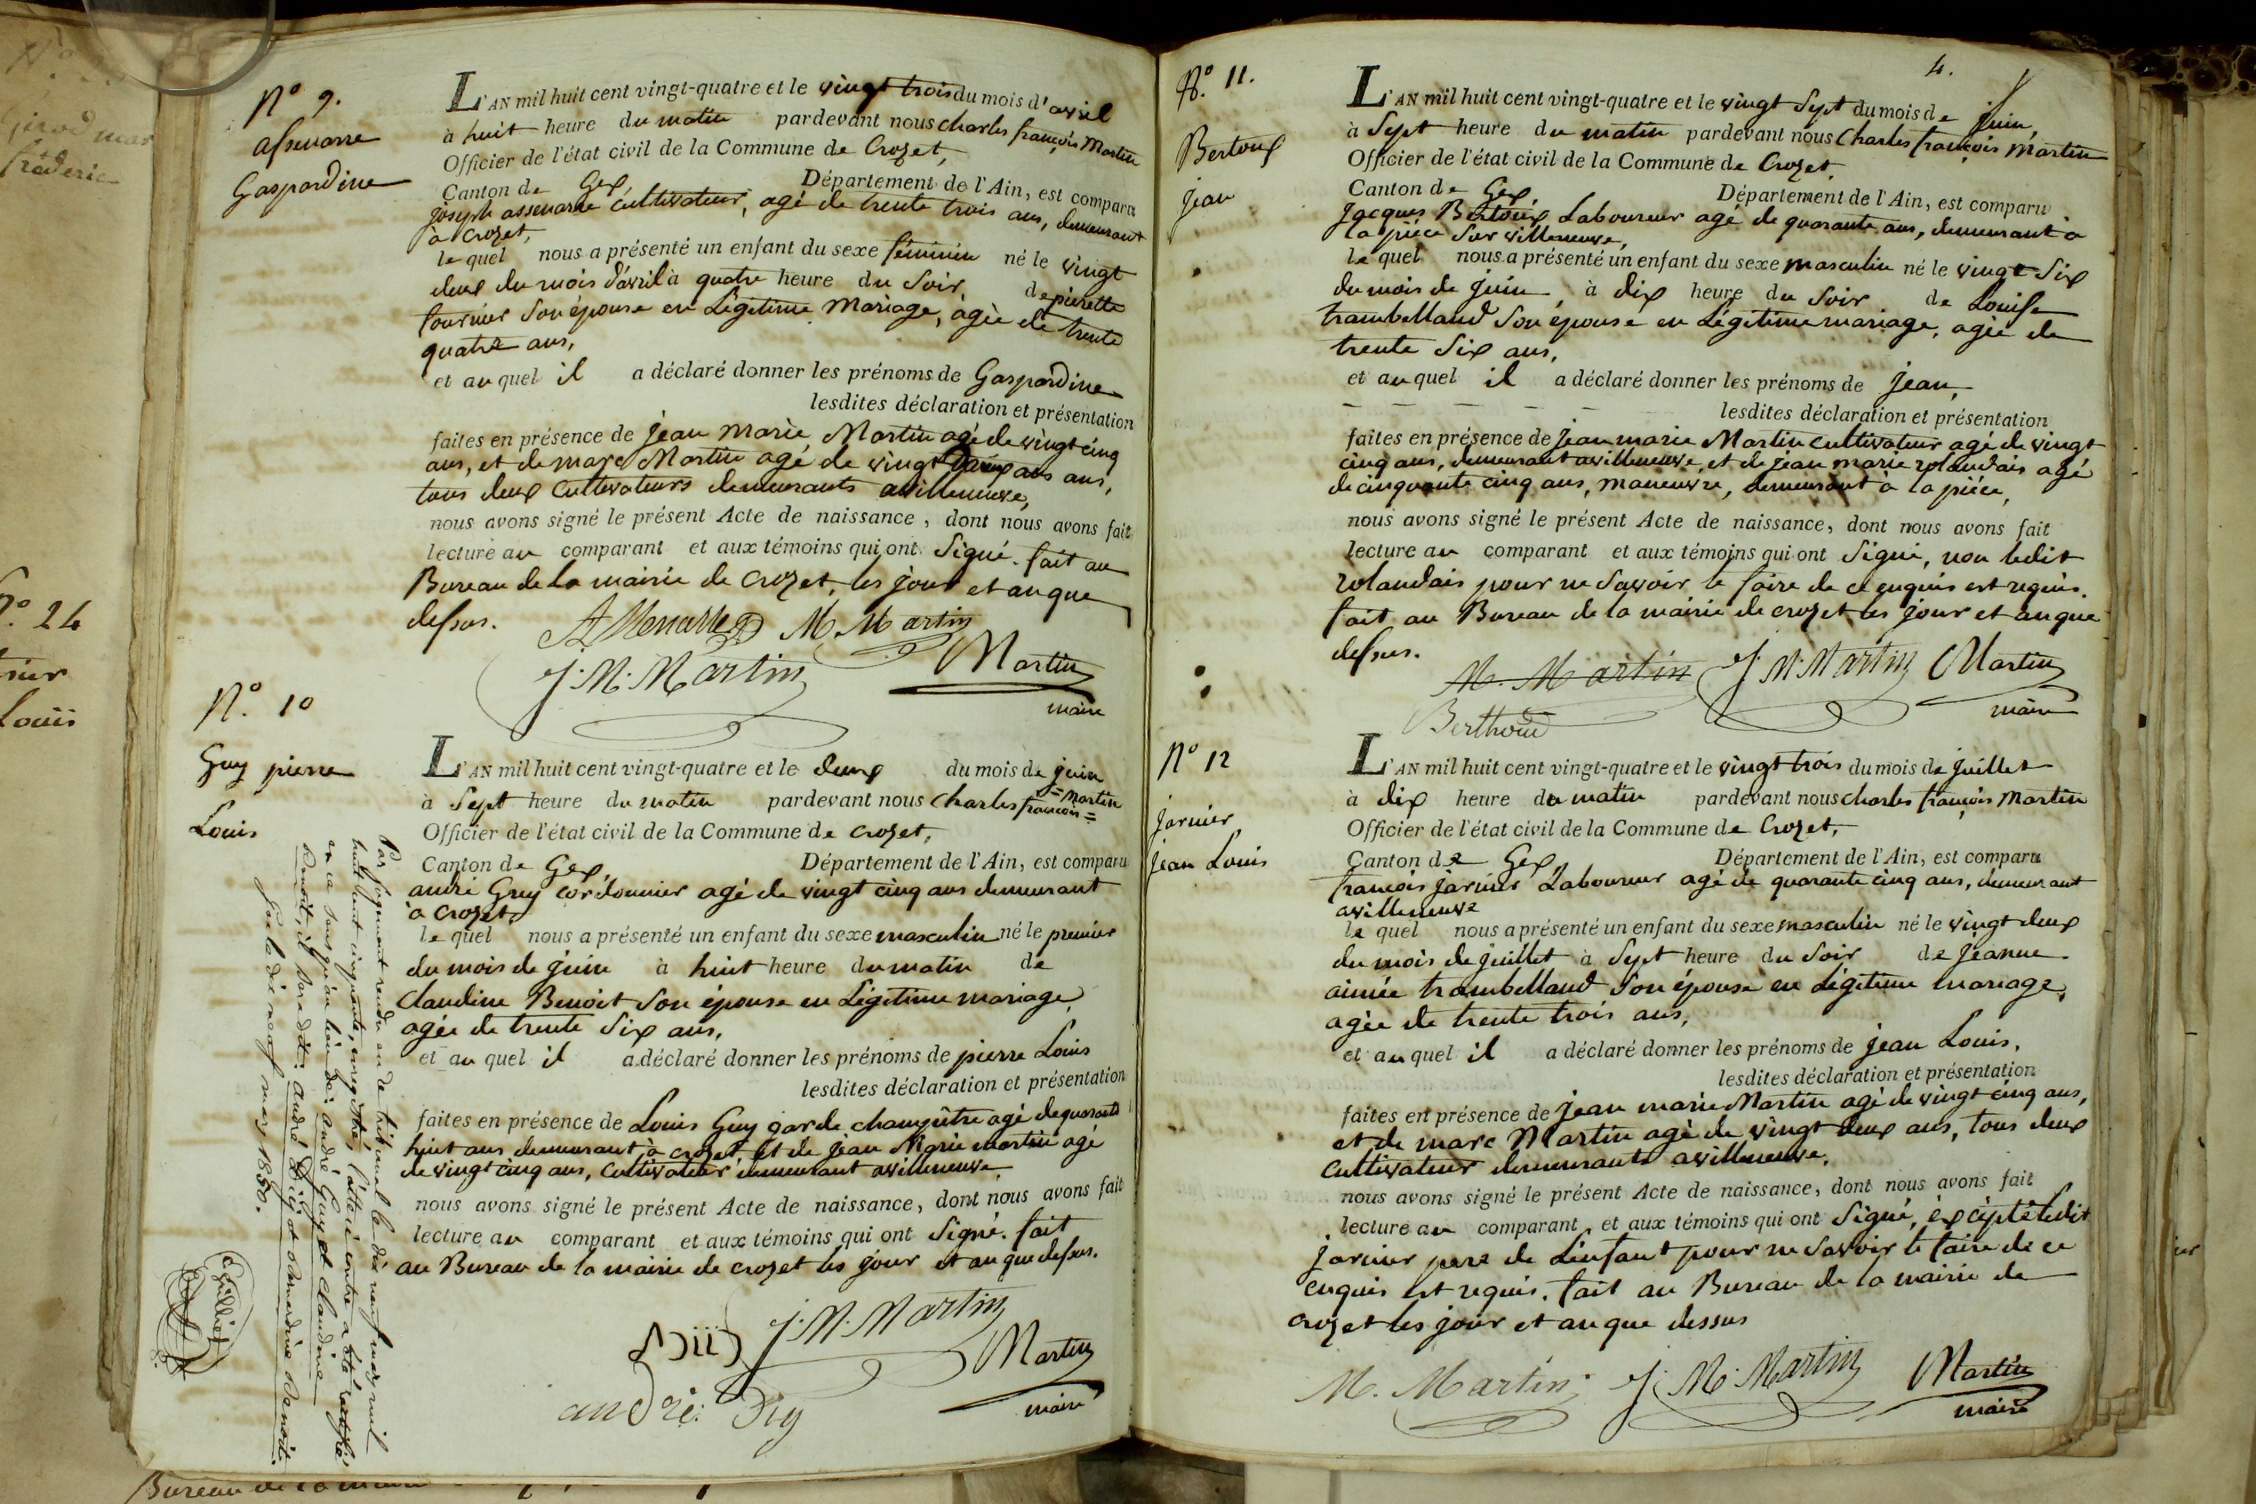 N.º 9.
assenarre
Gaspardine
L'AN mil huit cent vingt-quatre et le vingt trois du mois d'avril
à huit heure du matin pardevant nous charles françois Martin
Officier de l'état civil de la Commune de Crozet,
Canton de Gex, Département de l'Ain, est comparu
joseph assenarre cultivateur, agé de trente trois ans, demeurant
à crozet,
lequel nous a présenté un enfant du sexe féminin né le vingt
deux du mois d'avril à quatre heure du soir, de pierrette
fournier son épouse en Légitime Mariage, agée de trente
quatre ans,
et auquel il a déclaré donner les prénoms de Gaspardine
lesdites déclaration et présentation
faites en présence de jean marie Martin agé de vingt cinq
ans, et de marc Martin agé de vingt deux ans,
tous deux cultivateurs demeurants avilleneuve,
nous avons signé le présent Acte de naissance, dont nous avons fait
lecture au comparant et aux témoins qui ont signé. fait au
Bureau de la mairie de crozet, les jour et an que
dessus.
M. Martin
J. M. Martin Martin
maire
N.º 10
Guy pierre
Louis
L'AN mil huit cent vingt-quatre et le deux du mois de juin
à sept heure du matin pardevant nous Charles françois = Martin =
Officier de l'état civil de la Commune de crozet,
Canton de Gex, Département de l'Ain, est comparu
andré Guy cordonnier agé de vingt cinq ans demeurant
à crozet,
lequel nous a présenté un enfant du sexe masculin né le premier
du mois de juin à huit heure du matin de
Claudine Benoit son épouse en Légitime mariage,
agée de trente six ans,
et auquel il a déclaré donner les prénoms de pierre Louis
lesdites déclaration et présentation
faites en présence de Louis Guy garde champêtre agé de quarante
huit ans demeurant à crozet et de jean Marie martin agé
de vingt cinq ans, cultivateur demeurant avilleneuve,
nous avons signé le présent Acte de naissance, dont nous avons fait
lecture au comparant et aux témoins qui ont signé. fait
au Bureau de la mairie de crozet les jour et an que dessus.
J. M. Martin
Martin
andré: Dig
maire
Par jugement rendu en de tribunal le dix neuf mars mil
huit cent cinquante, enregistré, l'acte ci contre a été rectifié
en ce sens qu'au lieu de: andré Guy et claudine
Benoit, il sera dit: andré Dig et
Gex le dix neuf mars 1850.
4.
N.º 11.
Bertoux
jean
L'AN mil huit cent vingt-quatre et le vingt sept du mois de juin,
à sept heure du matin pardevant nous Charles françois Martin
Officier de l'état civil de la Commune de Crozet,
Canton de Gex Département de l'Ain, est comparu
jacques Bertoux Laboureur agé de quarante ans, demeurant à
la pièce sur villeneuve,
lequel nous a présenté un enfant du sexe masculin né le vingt six
du mois de juin, à dix heure du soir de Louise
trambelland son épouse en Légitime mariage, agée de
trente six ans,
et auquel il a déclaré donner les prénoms de jean,
lesdites déclaration et présentation
faites en présence de jean marie Martin cultivateur agé de vingt
cinq ans, demeurant avilleneuve, et de jean marie rolandais agé
de cinquante cinq ans, maneuvre, demeurant à la pièce,
nous avons signé le présent Acte de naissance, dont nous avons fait
lecture au comparant et aux témoins qui ont signé, non ledit
rolandais pour ne savoir le faire de ce enquis est requis.
fait au Bureau de la mairie de crozet les jour et an que
dessus.
M. Martin J. M. Martin Martin
Berthoud maire
N.º 12
jarnier
jean Louis
L'AN mil huit cent vingt-quatre et le vingt trois du mois de juillet
à dix heure du matin pardevant nous charles françois Martin
Officier de l'état civil de la Commune de Crozet,
Canton de Gex Département de l'Ain, est comparu
françois jarnier Laboureur agé de quarante cinq ans, demeurant
avilleneuve
lequel nous a présenté un enfant du sexe masculin né le vingt deux
du mois de juillet à sept heure du soir de jeanne
aimée trambelland son épouse en Légitime mariage,
agée de trente trois ans,
et auquel il a déclaré donner les prénoms de jean Louis,
lesdites déclaration et présentation
faites en présence de jean marie Martin agé de vingt cinq ans,
et de marc Martin agé de vingt deux ans, tous deux
cultivateur demeurants avilleneuve,
nous avons signé le présent Acte de naissance, dont nous avons fait
lecture au comparant, et aux témoins qui ont signé, éxcépté ledit
jarnier pere de Lenfant pour ne savoir le faire de ce
enquis est requis. fait au Bureau de la mairie de
crozet les jour et an que dessus
M. Martin J. M. Martin Martin
maire